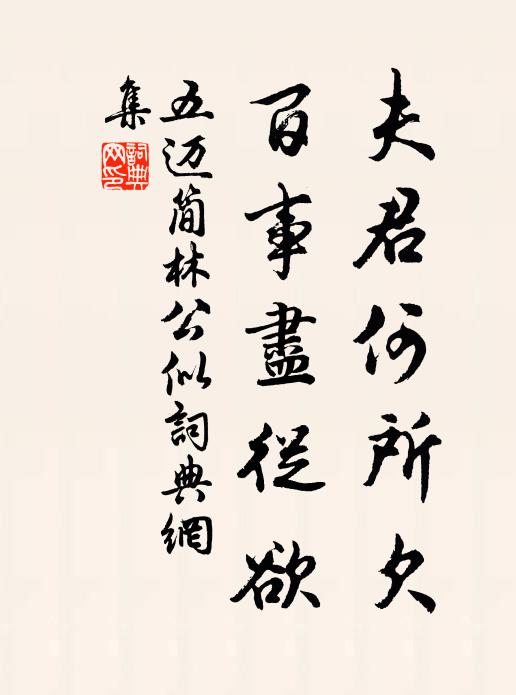 夫君何所欠
百事盡從欲
五迈简林公似詞典網
集
詞典
网印